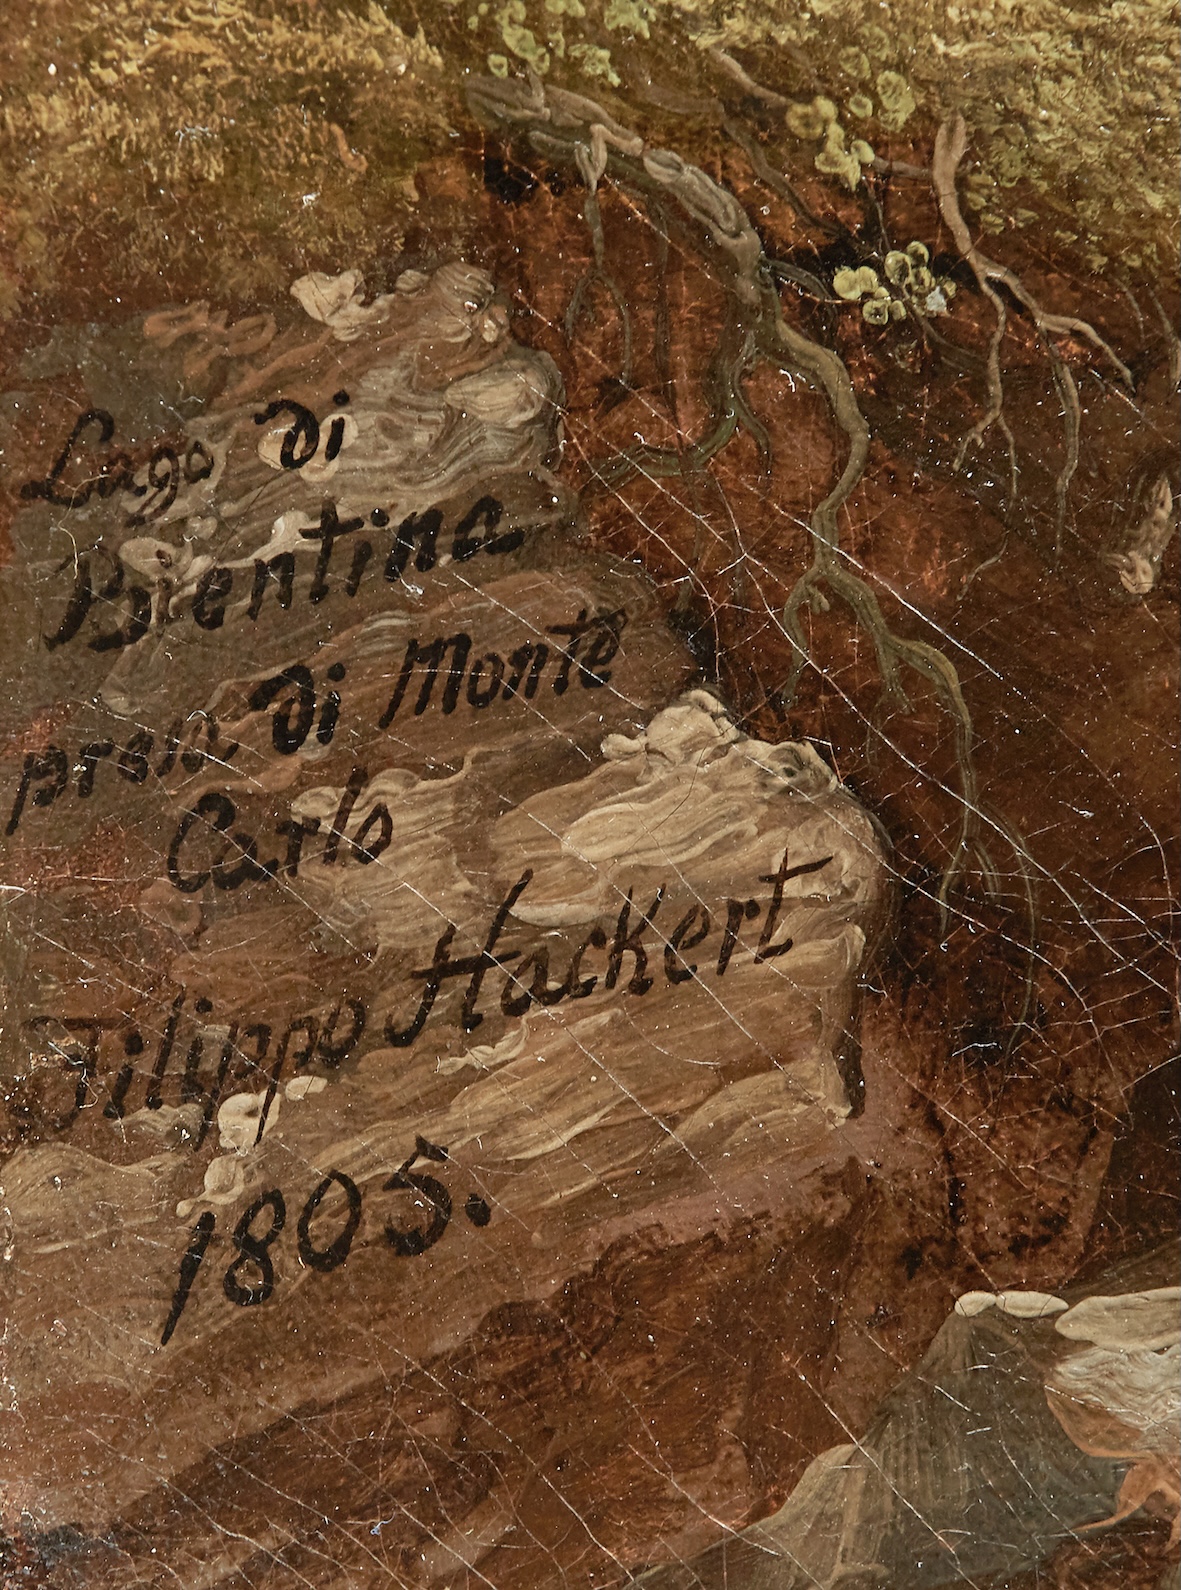 Lago di
Bientina
presa di Monte
Carlo
Filippo Hackert
1805.